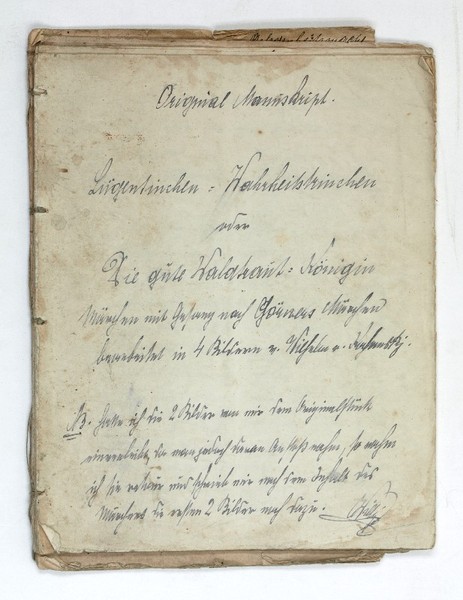 Original Manuskript.
Lügentinchen = Wahrheitstinchen
oder
Die gute Waldtraut = Königin
Märchen mit Gesang nach Görners Märchen
bearbeitet in 4 Bildern v. Wilhelm v.
NB. Hatte ich die 2 Bilder von mir dem Originalstück
einverleibt, da man jedoch daran Anstoß nahm, so nahm
ich sie retour und schrieb mir nach dem Inhalt des
Märchens die ersten 2 Bilder noch dazu.